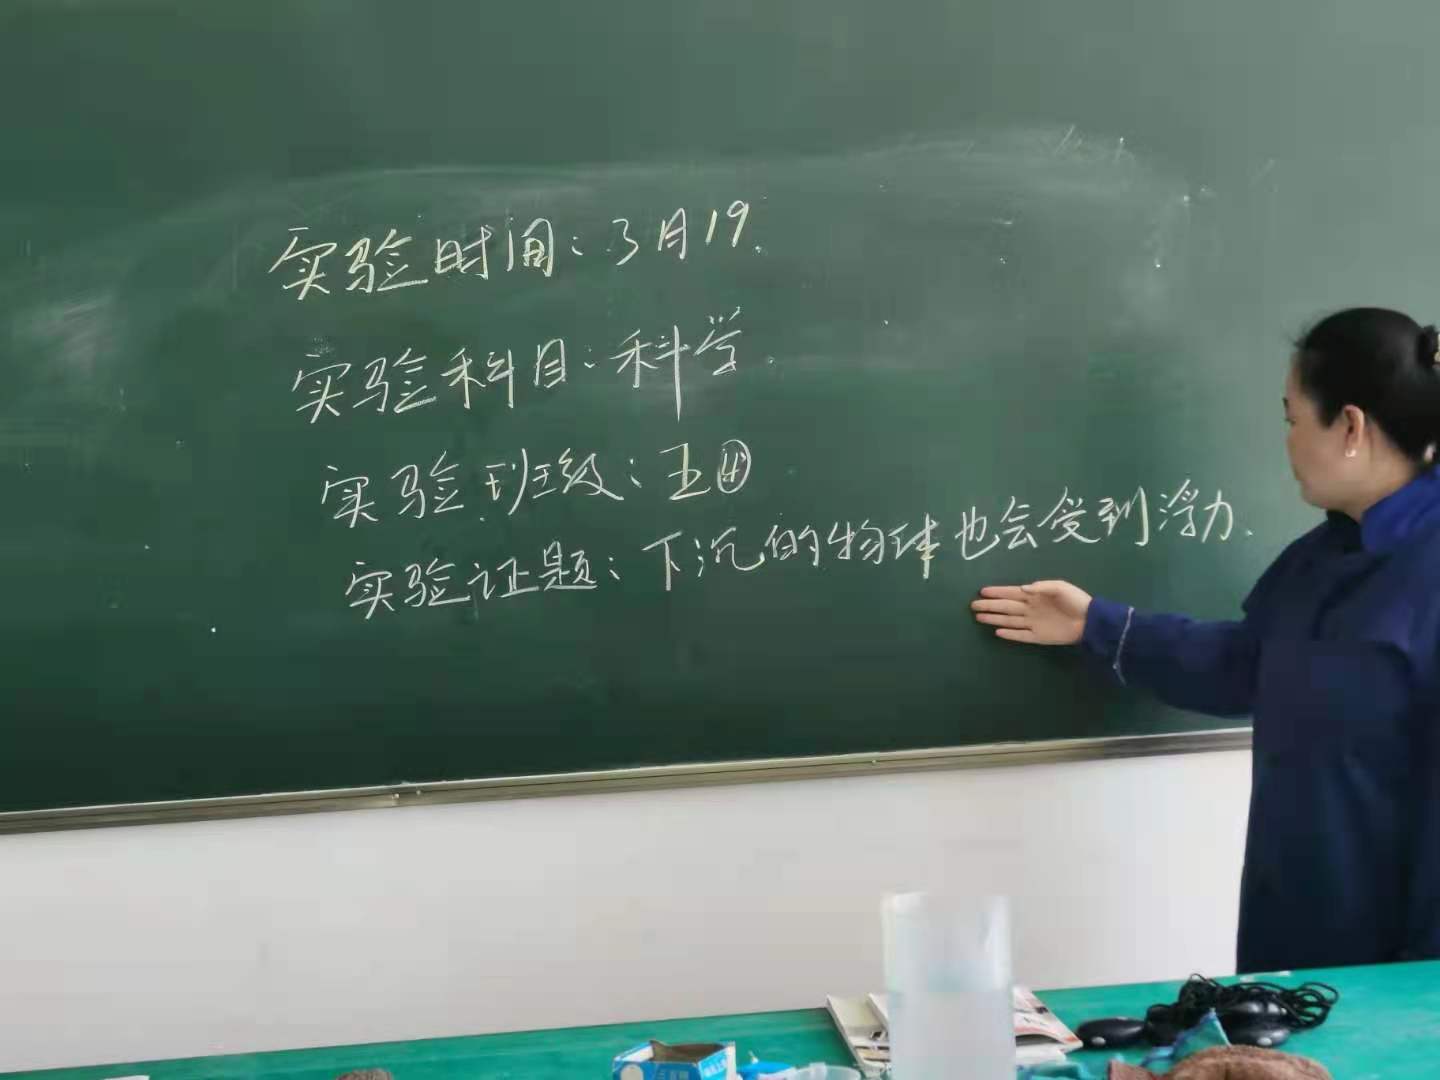 实验时间：3月19.
实验科目：科学.
实验班级：五④
实验证题：下沉的物体也会受到浮力.